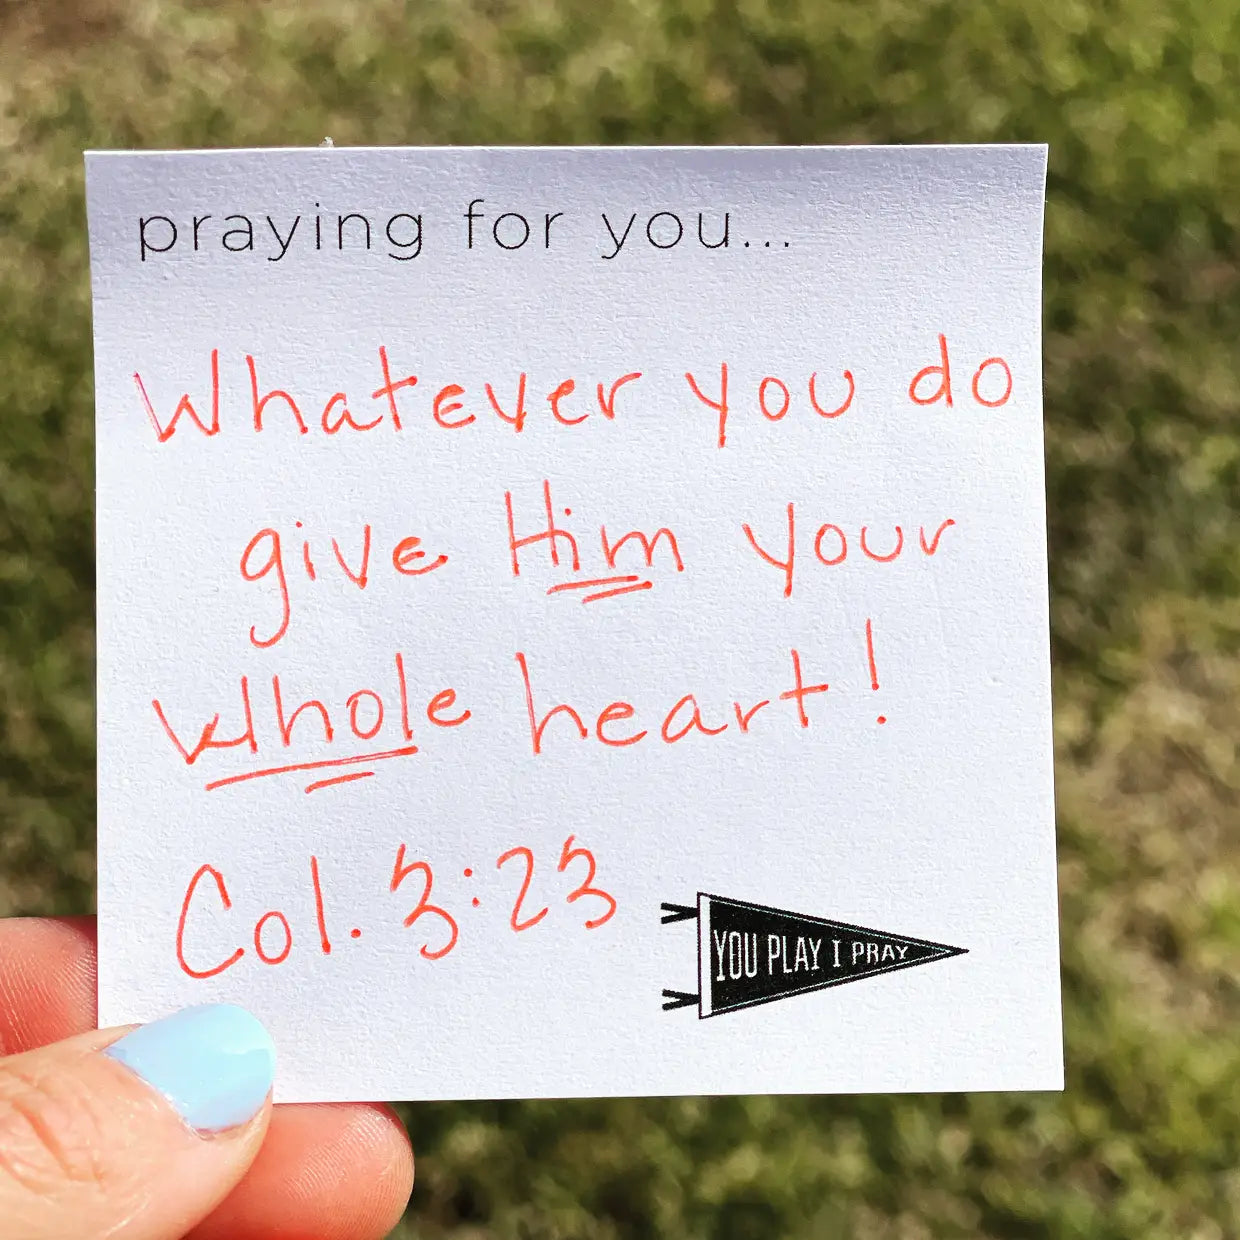 praying for you...
Whatever you do
give Him your
whole heart!
Col. 3:23
YOU PLAY I PRAY